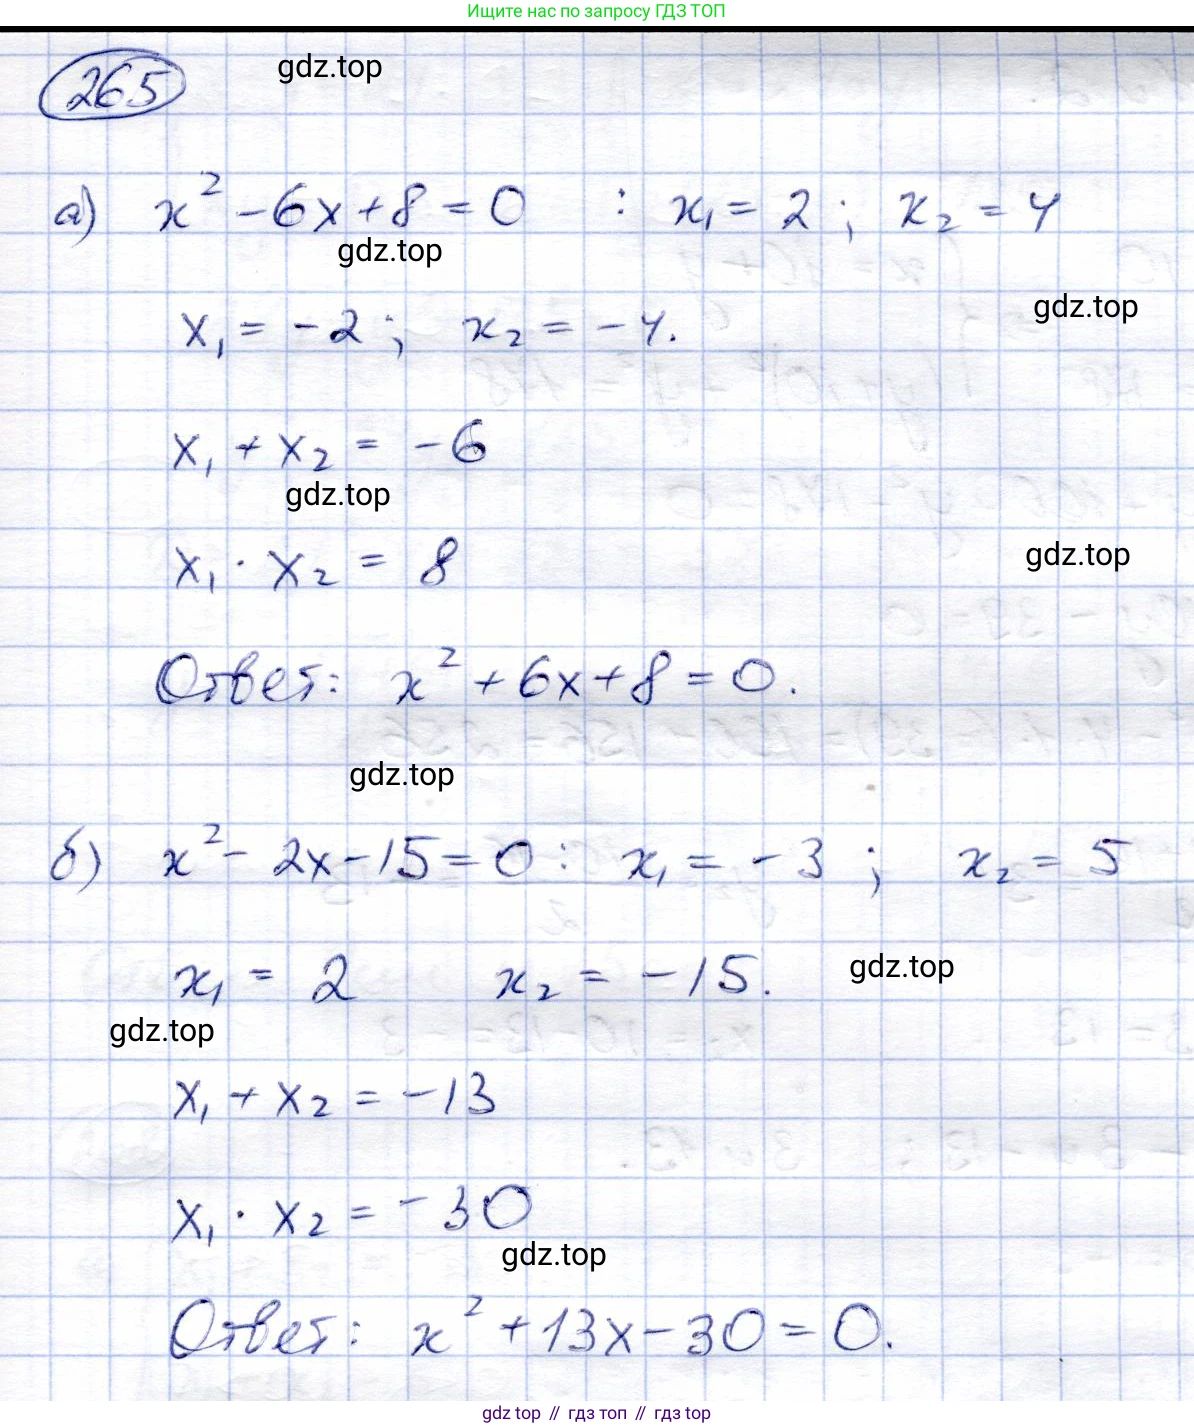 Ищите нас по запросу ГДЗ ТОП
265
gdz.top
а) x² - 6x + 8 = 0 : x₁ = 2 ; x₂ = 4
gdz.top
gdz.top
x₁ = -2 ; x₂ = -4.
x₁ + x₂ = -6
gdz.top
x₁ · x₂ = 8
gdz.top
Ответ: x² + 6x + 8 = 0.
gdz.top
б) x² - 2x - 15 = 0 : x₁ = -3 ; x₂ = 5
x₁ = 2 x₂ = -15.
gdz.top
gdz.top
x₁ + x₂ = -13
x₁ · x₂ = -30
gdz.top
Ответ: x² + 13x - 30 = 0.
gdz top // гдз топ // gdz top